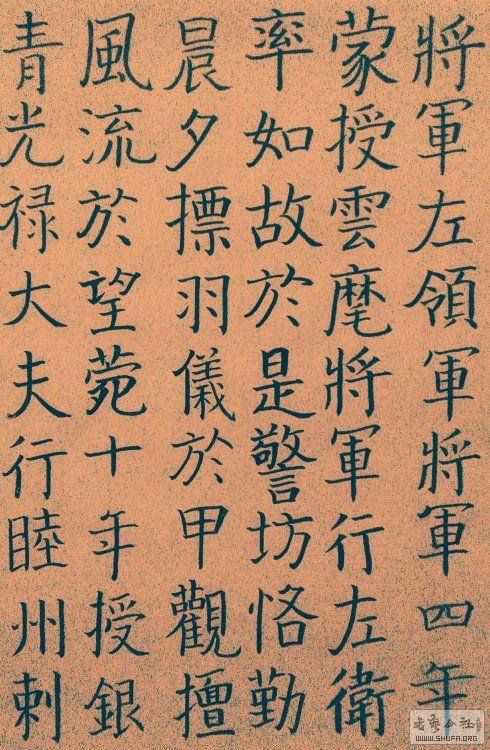 將軍左領軍將軍四年
蒙授雲麾將軍行左衛
率如故於是警坊恪勤
晨夕摽羽儀於甲觀擅
風流於望菀十年授銀
青光禄大夫行睦州刺
WWW.SHUFA.ORG